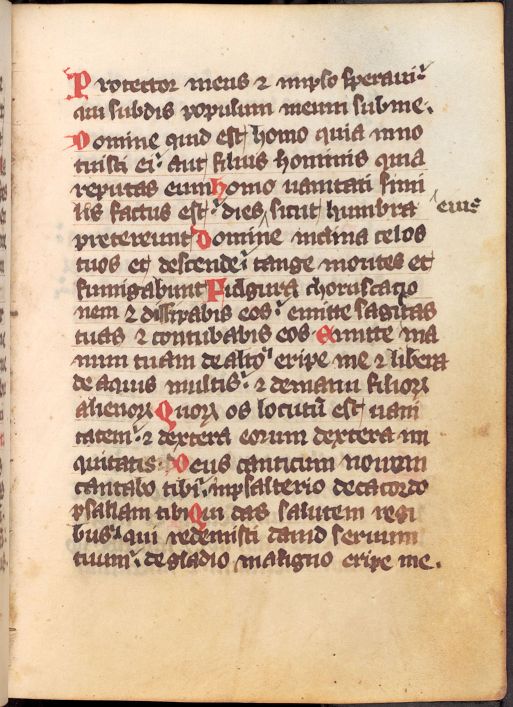 Protector meus ⁊ inipso speraui:
qui subdis populum meum subme.
Domine quid est homo quia inno
tuisti ei: aut filius hominis quia
reputas eum homo uanitati simi
lis factus est: dies sicut humbra eius
pretereunt Domine inclina celos
tuos et descende: tange montes et
fumigabunt Fulgura choruscatio
nem ⁊ dissipabis eos: emitte sagitas
tuas ⁊ contubabis eos. Emitte ma
num tuam de alto: eripe me ⁊ libera
de aquis multis: ⁊ demanu filioꝝ
alienoꝝ Quoꝝ os locutū est uani
tatem: ⁊ dextera eorum dextera ini
quitatis. Deus canticum nouum
cantabo tibi: inpsalterio decacordo
psallam tibi Qui das salutem regi
bus: qui redemisti dauid seruum
tuum: de gladio maligno eripe me.